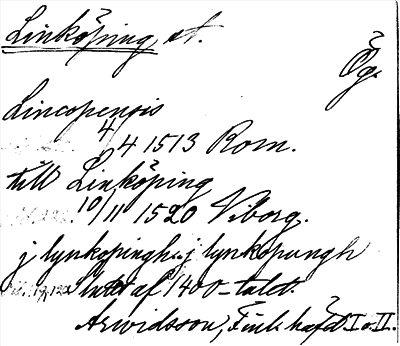 Linköping, st.
Ög.
Lincopensis
4/4 1513 Rom.
till Linköping
10/11 1520 Viborg.
j lynköpingh. j lynköpungh
slutet af 1400-talet.
Arwidsson, Finl. häfd. I o. II.